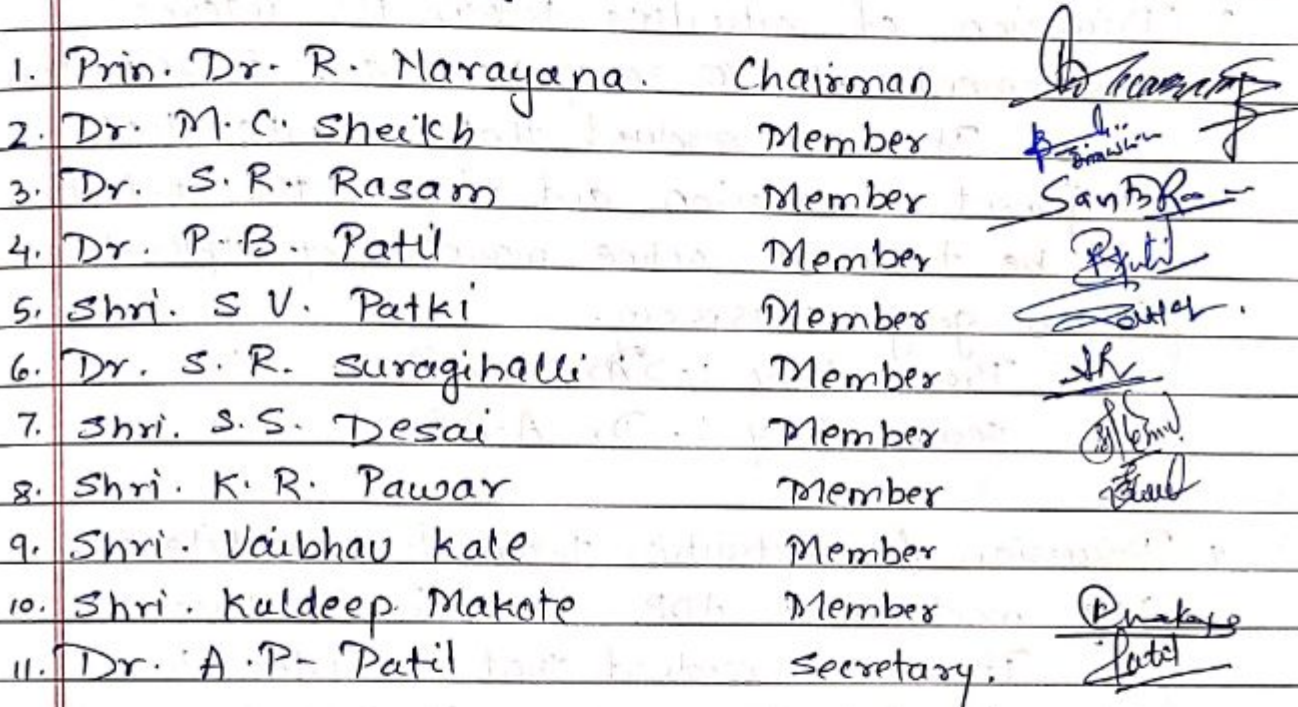 1. Prin. Dr. R. Narayana. Chairman
2. Dr. M.C. Sheikh Member
3. Dr. S.R. Rasam Member
4. Dr. P.B. Patil Member
5. Shri. S V. Patki Member
6. Dr. S. R. Suragihalli Member
7. Shri. S.S. Desai Member
8. Shri. K. R. Pawar Member
9. Shri. Vaibhav Kale Member
10. Shri. Kuldeep Makote Member
11. Dr. A.P- Patil Secretary. Patil